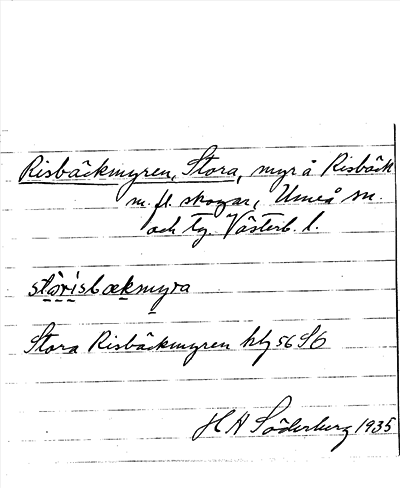 Risbäckmyren, Stora, myr å Risbäck
m. fl. skogar, Umeå sn.
och tg Västerb. l.
störisbækmyra
Stora Risbäckmyren hbl 56 S6
H A Söderberg 1935